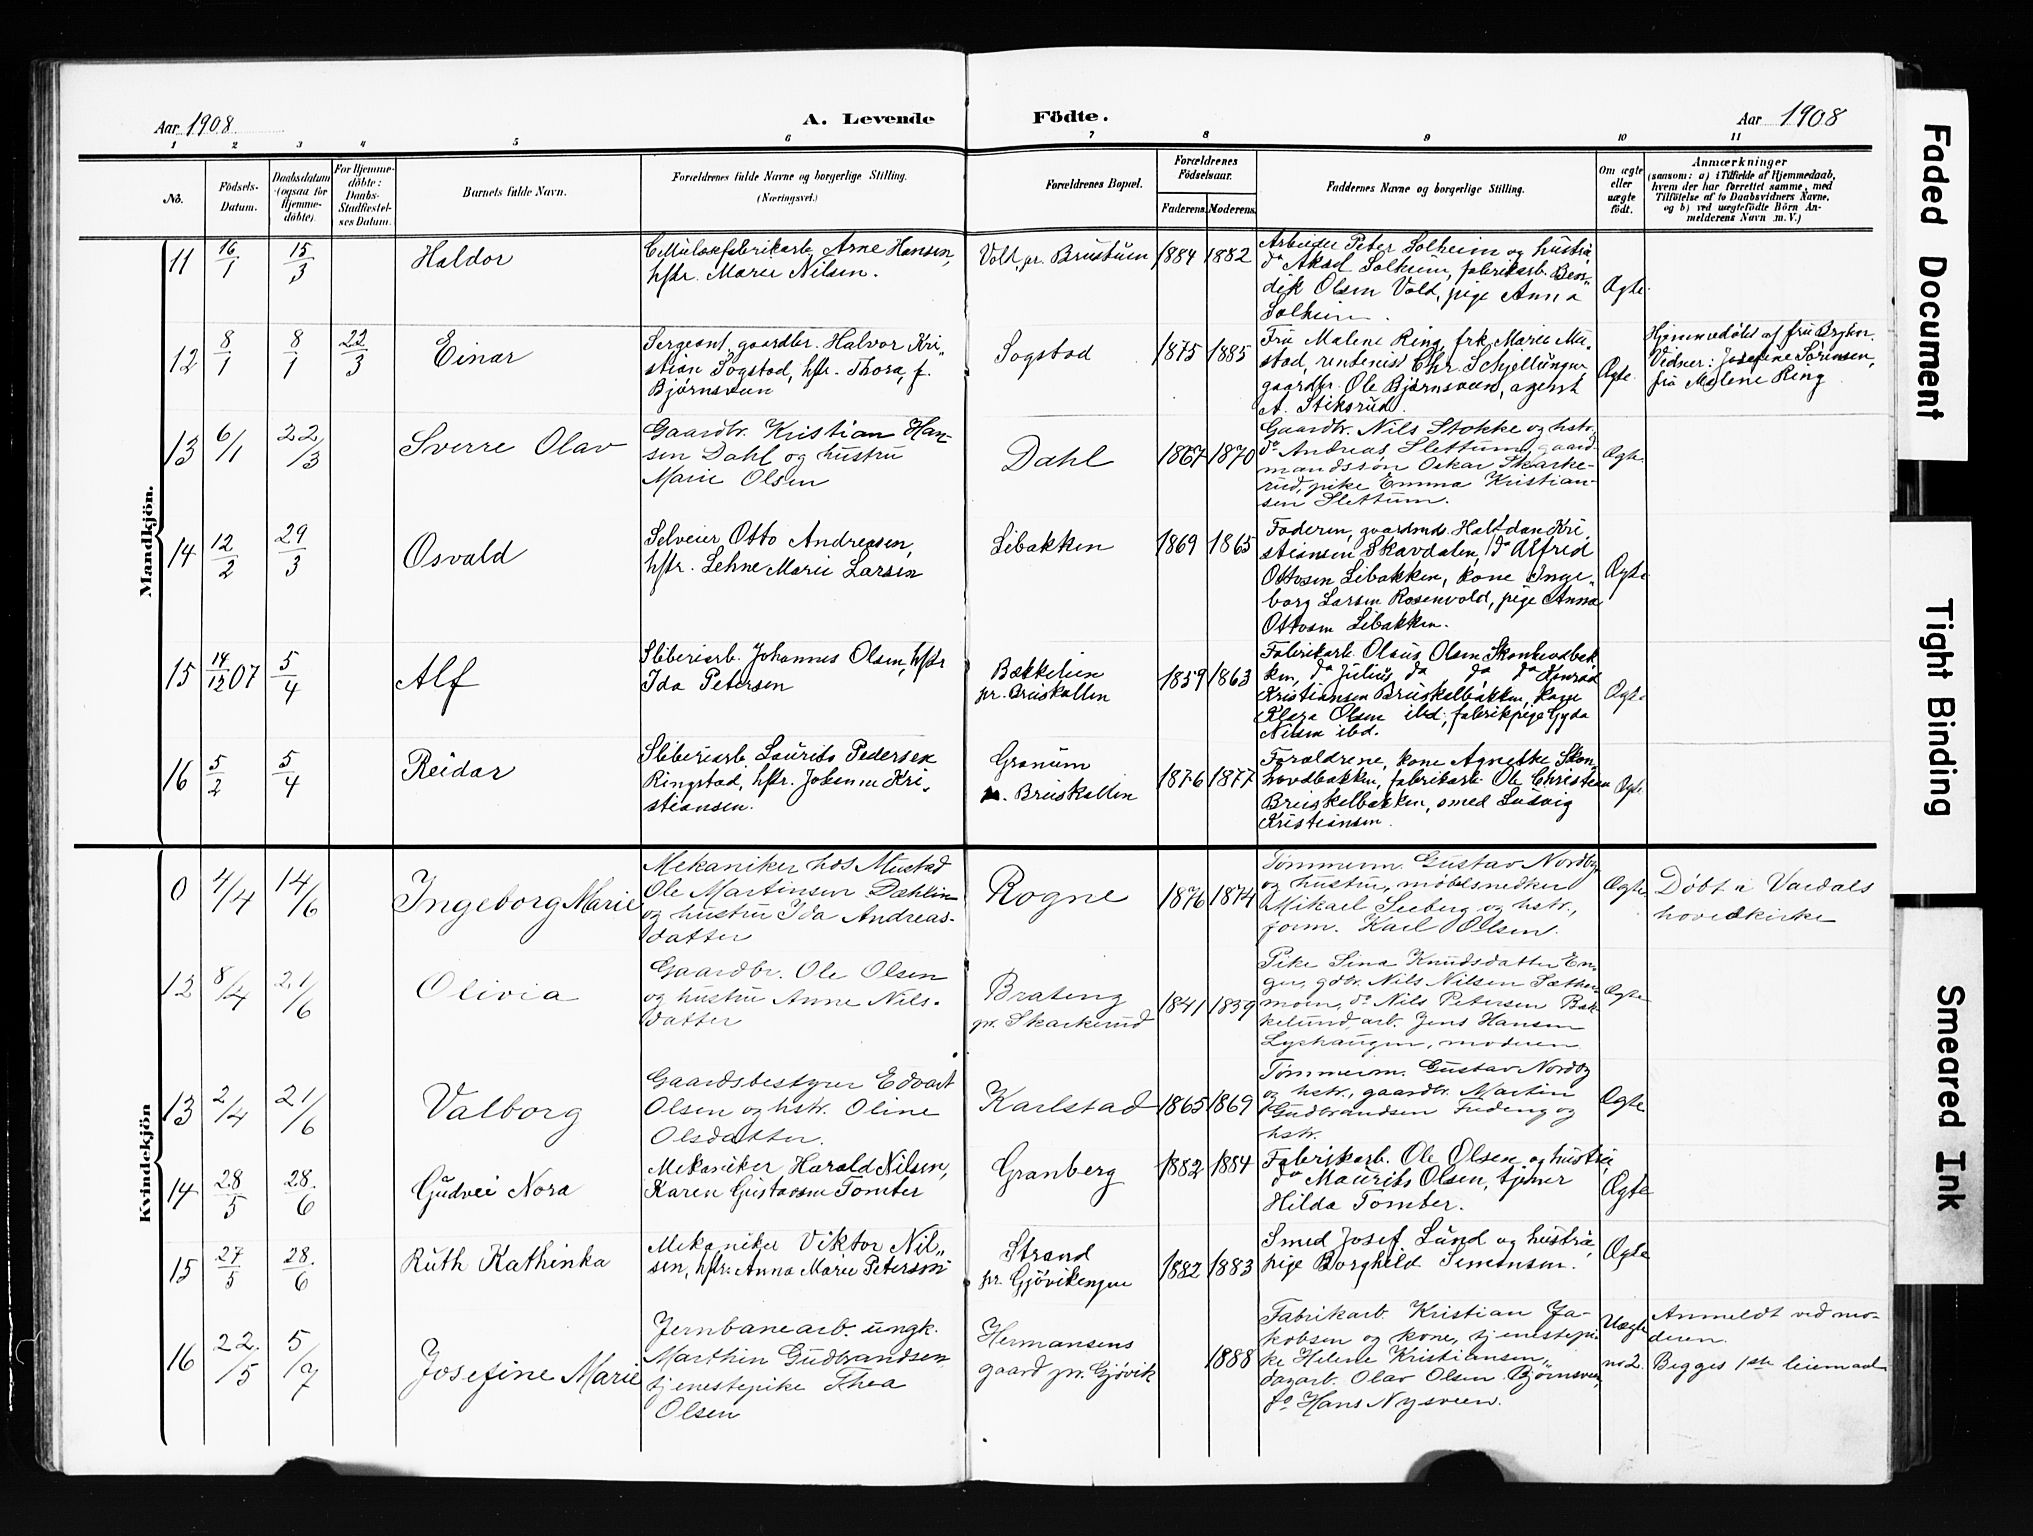 Aar 1908
A. Levende
Födte.
Aar 1908
1 2 3 4 5 6 7 8 9 10 11
No.
Födsels-
Datum.
Daabsdatum
(ogsaa for
Hjemme-
döbte).
For Hjemme-
döbte:
Daabs-
Stadfæstel-
ses Datum.
Barnets fulde Navn.
Forældrenes fulde Navne og borgerlige Stilling.
(Næringsvei.)
Forældrenes Bopæl.
Forældrenes
Födselsaar.
Faderens. Moderens.
Faddernes Navne og borgerlige Stilling.
Om ægte
eller
uægte
født.
Anmærkninger
(saasom: a) i Tilfælde af Hjemmedaab,
hvem der har forrettet samme, med
Tilföielse af to Daabsvidners Navne,
og b) ved uægtefödte Börn An-
melderens Navn m. V.)
Mandkjön.
11 16/1 15/3 Haldor
Arne Hansen,
hstr. Marie Nilsen.
Vold, pr. Brustuen 1884 1882
Arbeider Peter Solheim og hustru,
do Aksel Solheim, fabrikarb. Ben-
dik Olsen Vold, pige Anna
Solheim.
Ægte.
12 8/1 8/1 22/3 Einar
Sergeant, gaardbr. Halvor Kri-
stian Sogstad, hstr. Thora, f.
Bjørnsveen
Sogstad 1875 1885
Fru Malene Ring, frk. Marie Mu-
stad, rentenist Chr. Schjellungen
gaardbr. Ole Bjørnsveen, agent
A. Stiksrud.
Ægte.
Hjemmedøbt af fru
Vidner: Josefine Sörensen,
fru Malene Ring
13 6/1 22/3 Sverre Olav
Gaardbr. Kristian Han-
sen Dahl og hustru
Marie Olsen
Dahl 1867 1870
Gaardbr. Nils Stokke og hstr.
do Andreas Slettum, gaard-
mandssøn Oskar Skarke-
rud, pike Emma Kristian-
sen Slettum.
Ægte.
14 12/2 29/3 Osvald
Selveier Otto Andreasen,
hstr. Lehne Marie Larsen
Libakken 1869 1865
Faderen, gaardmd. Halfdan Kri-
stiansen Skavdalen, do Alfred
Ottosen Libakken, kone Inge-
borg Larsen Rosenvold, pige Anna
Ottosen Libakken.
Ægte.
15 14/12 07 5/4 Alf
Sliberiarb. Johannes Olsen, hstr.
Ida Petersen
Bækkelien
pr. Bruskallen
1859 1863
Fabrikarb. Olaus Olsen Skonhovdbak-
ken, do Julius do do do Konrad
Kristiansen Bruskelbakken, kone
Klara Olsen ibd., fabrikpige Gyda
Nilsen ibd.
Ægte
16 5/2 5/4 Reidar
Sliberiarb. Laurits Pedersen
Ringstad, hstr. Johanne Kri-
stiansen.
Granum
pr. Bruskallen
1876 1877
Forældrene, kone Agnethe Skon-
hovdbakken, fabrikarb. Ole Christian
Bruskelbakken, smed Ludvig
Kristiansen.
Ægte
Kvindekjön
0 4/4 14/6 Ingeborg Marie
Mekaniker hos Mustad
Ole Martinsen Dæhlin
og hustru Ida Andreas-
datter
Rogne 1876 1874
Tømmerm. Gustav Nordby
og hustru, møbelsnedker
Mikael Seeberg og hstr.,
form. Karl Olsen.
Ægte.
Døbt i Vardals
hovedkirke
12 8/4 21/6 Olivia
Gaardbr. Ole Olsen
og hustru Anne Nils-
datter
Brateng
pr. Skarkerud
1841 1859
Pike Sina Knudsdatter En-
ger, gdbr. Nils Nilsen Sæther-
moen, do Nils Petersen Bæk-
kelund, arb. Jens Hansen
Lyshaugen, moderen
Ægte
13 2/4 21/6 Valborg
Gaardsbestyrer Edvart
Olsen og hstr. Oline
Olsdatter.
Karlstad 1865 1869
Tømmerm. Gustav Nordby
og hstr., gaardbr. Martin
Gudbrandsen Fredeng og
hstr.
Ægte
14 28/5 28/6 Gudvei Nora
Mekaniker Harald Nilsen,
Karen Gustavsen Tomter
Granberg 1882 1884
Fabrikarb. Ole Olsen og hustru,
do Maurits Olsen, tjener
Hilda Tomter.
Ægte
15 27/5 28/6 Ruth Kathinka
Mekaniker Viktor Nil-
sen, hstr. Anna Marie Peterson
Strand
pr. Gjövikengen
1882 1883
Smed Josef Lund og hustru,
pige Borghild Simensen.
Ægte
16 22/5 5/7 Josefine Marie
Jernbanearb. ungk.
Marthin Gudbrandsen,
tjenestepike Thea
Olsen
Hermansens
gaard pr. Gjövik
1888
Fabrikarb. Kristian Ja-
kobsen og kone, tjenestepi-
ke Helene Kristiansen,
dagarb. Olav Olsen Bjørnsveen,
do Hans Nysveen.
Uægte
no 2.
Anmeldt ved mo-
deren.
Begges 1ste leiermaal
Faded Document
Tight Binding
Smeared Ink